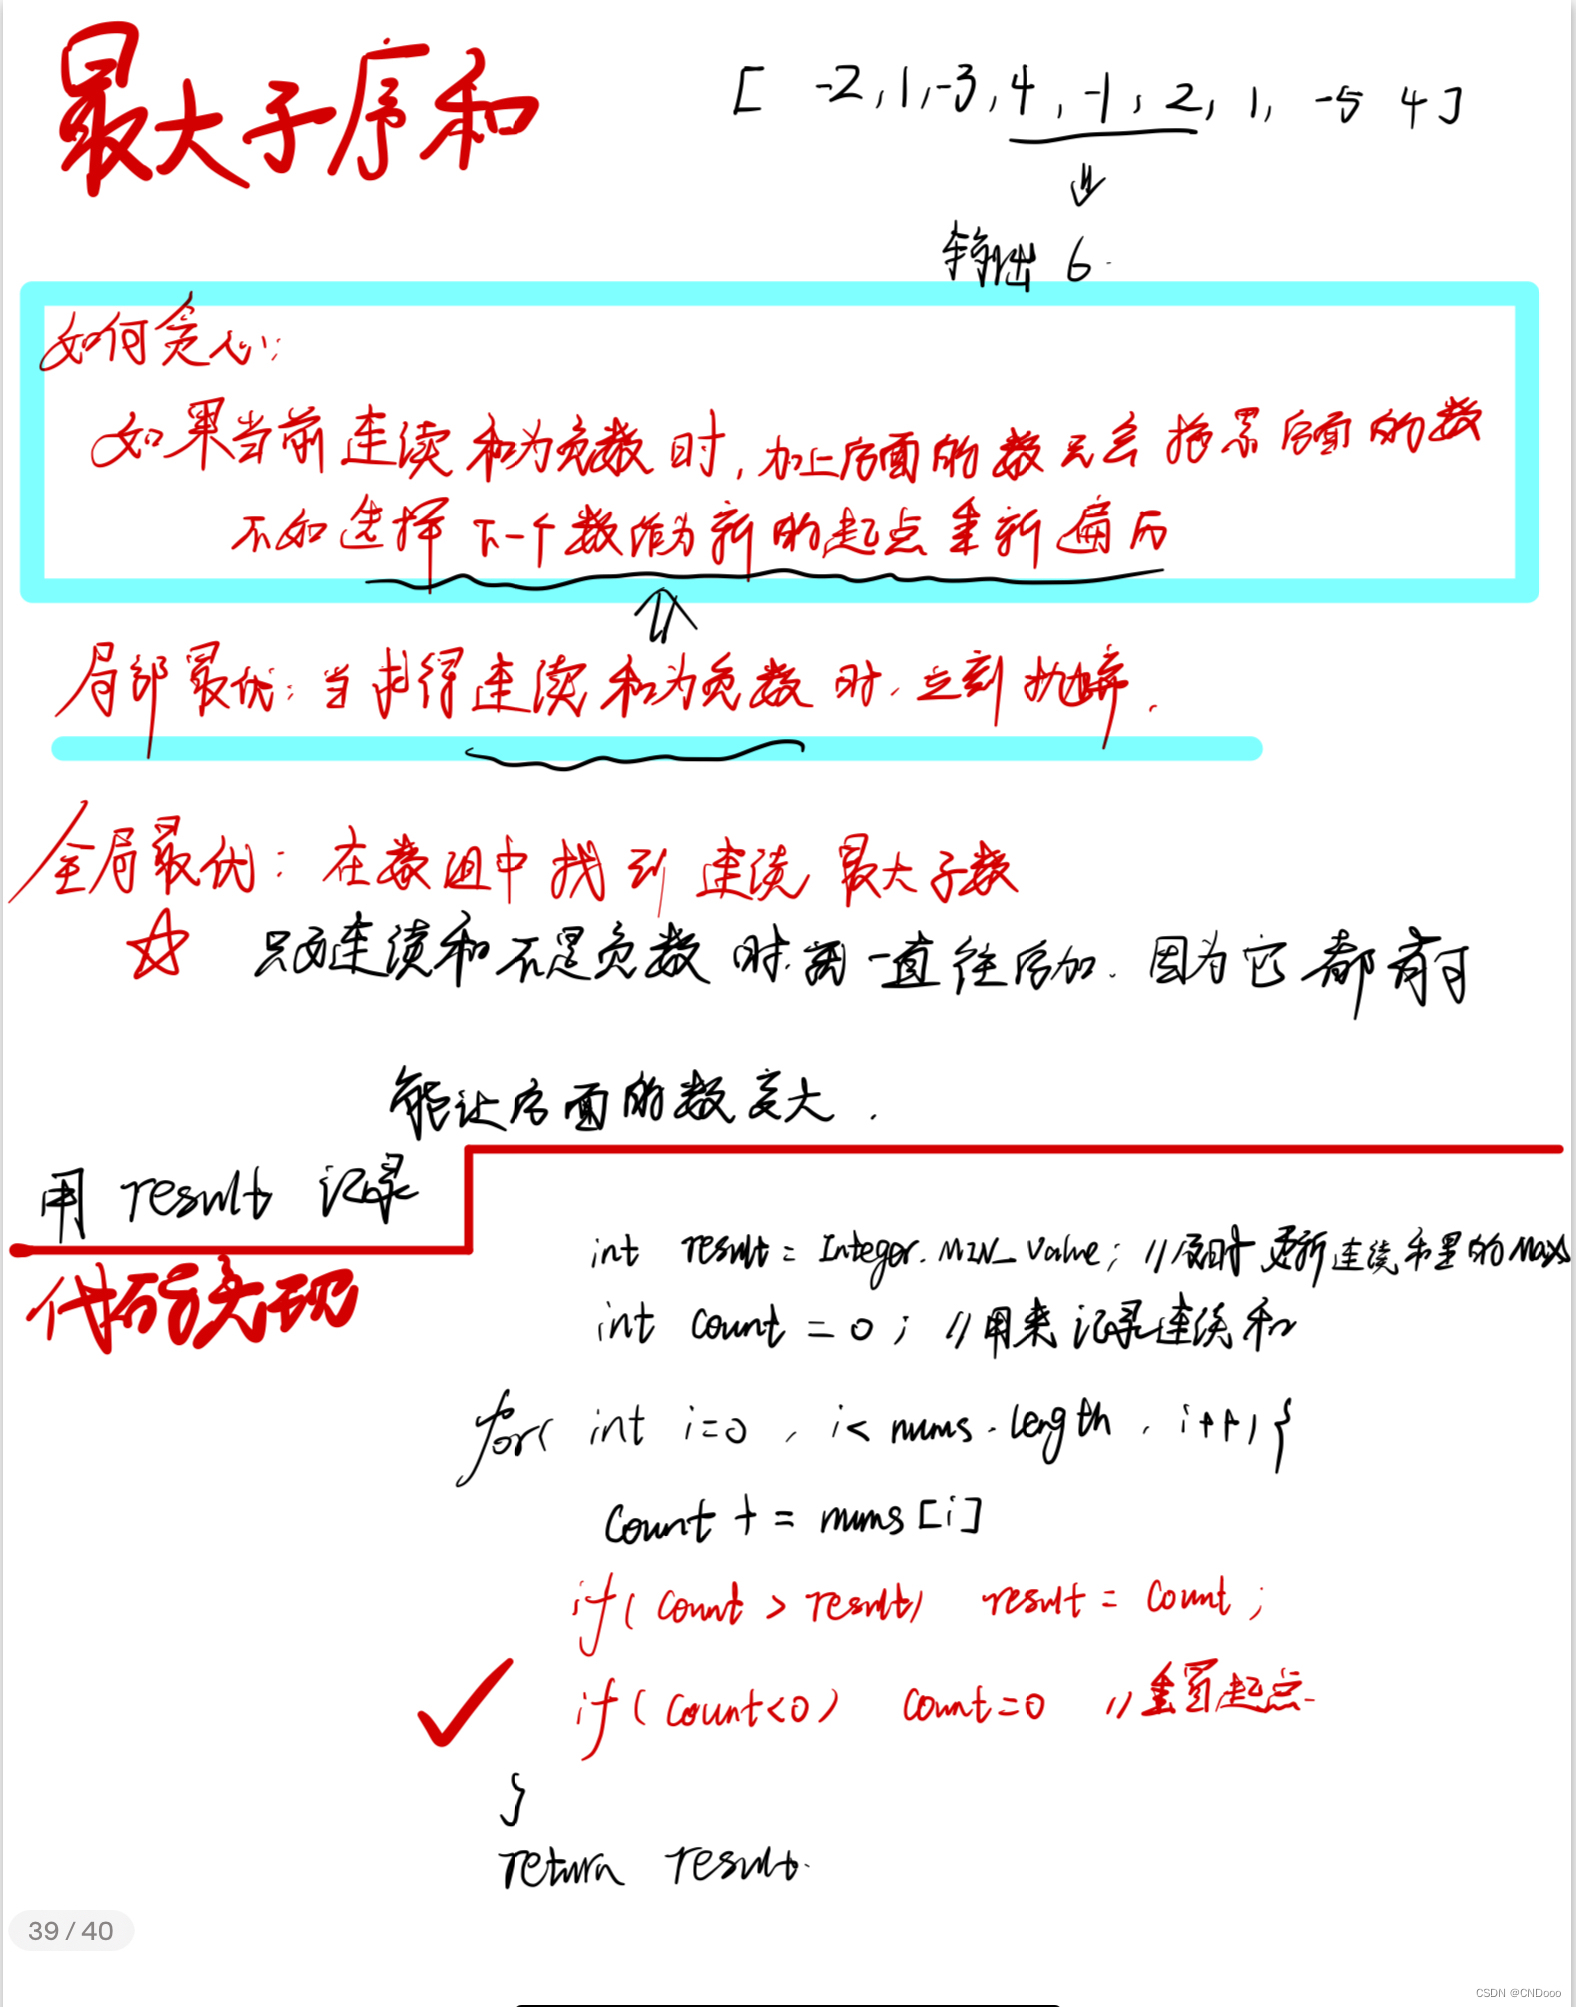 最大子序和
[ -2, 1, -3, 4, -1, 2, 1, -5 4]
输出 6.
如何贪心:
如果当前连续和为负数时,加上后面的数只会拖累后面的数
不如选择下一个数作为新的起点重新遍历
局部最优:当求得连续和为负数时,立刻抛弃.
全局最优:在数组中找到连续最大子数
只要连续和不是负数时,需一直往后加.因为它都有可
能让后面的数变大.
用 result 记录
代码实现
int result = Integer.MIN_Value; //及时更新连续和里的Max
int count = 0; //用来记录连续和
for( int i=0, i< nums.length, i++) {
Count += nums[i]
if( count > result) result = count;
if( count<0) count=0 //重置起点.
}
return result.
39 / 40
CSDN @CNDooo